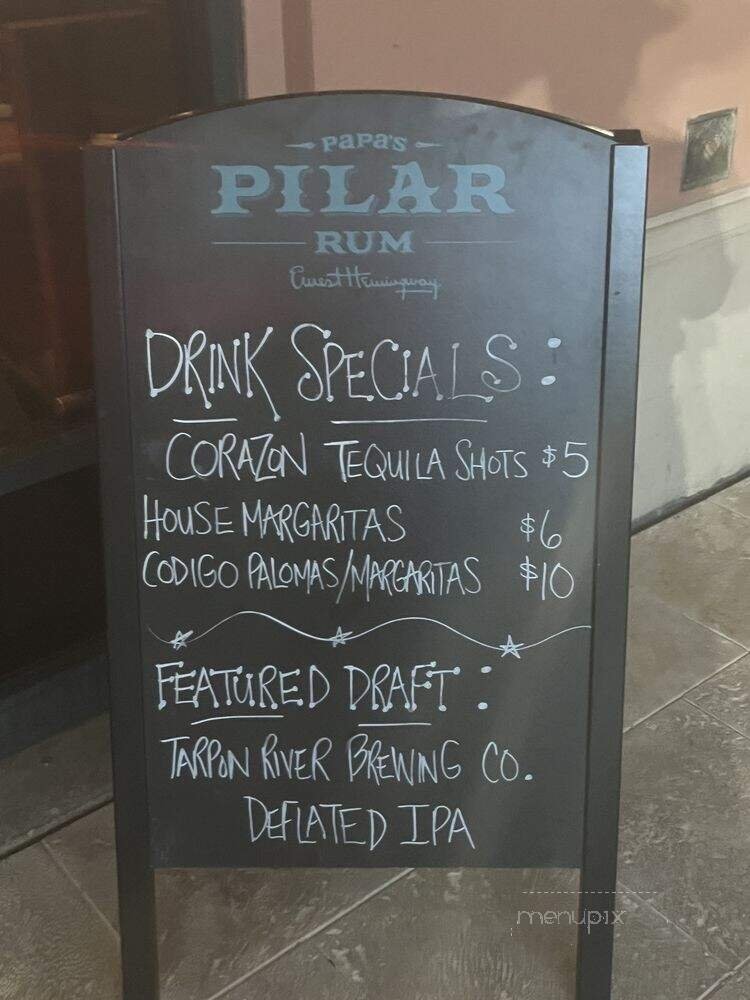 PaPa's
PILAR
RUM
Ernest Hemingway
DRINK SPECIALS:
CORAZON TEQUILA SHOTS $5
HOUSE MARGARITAS $6
CODIGO PALOMAS/MARGARITAS $10
FEATURED DRAFT:
TARPON RIVER BREWING CO.
DEFLATED IPA
menupix